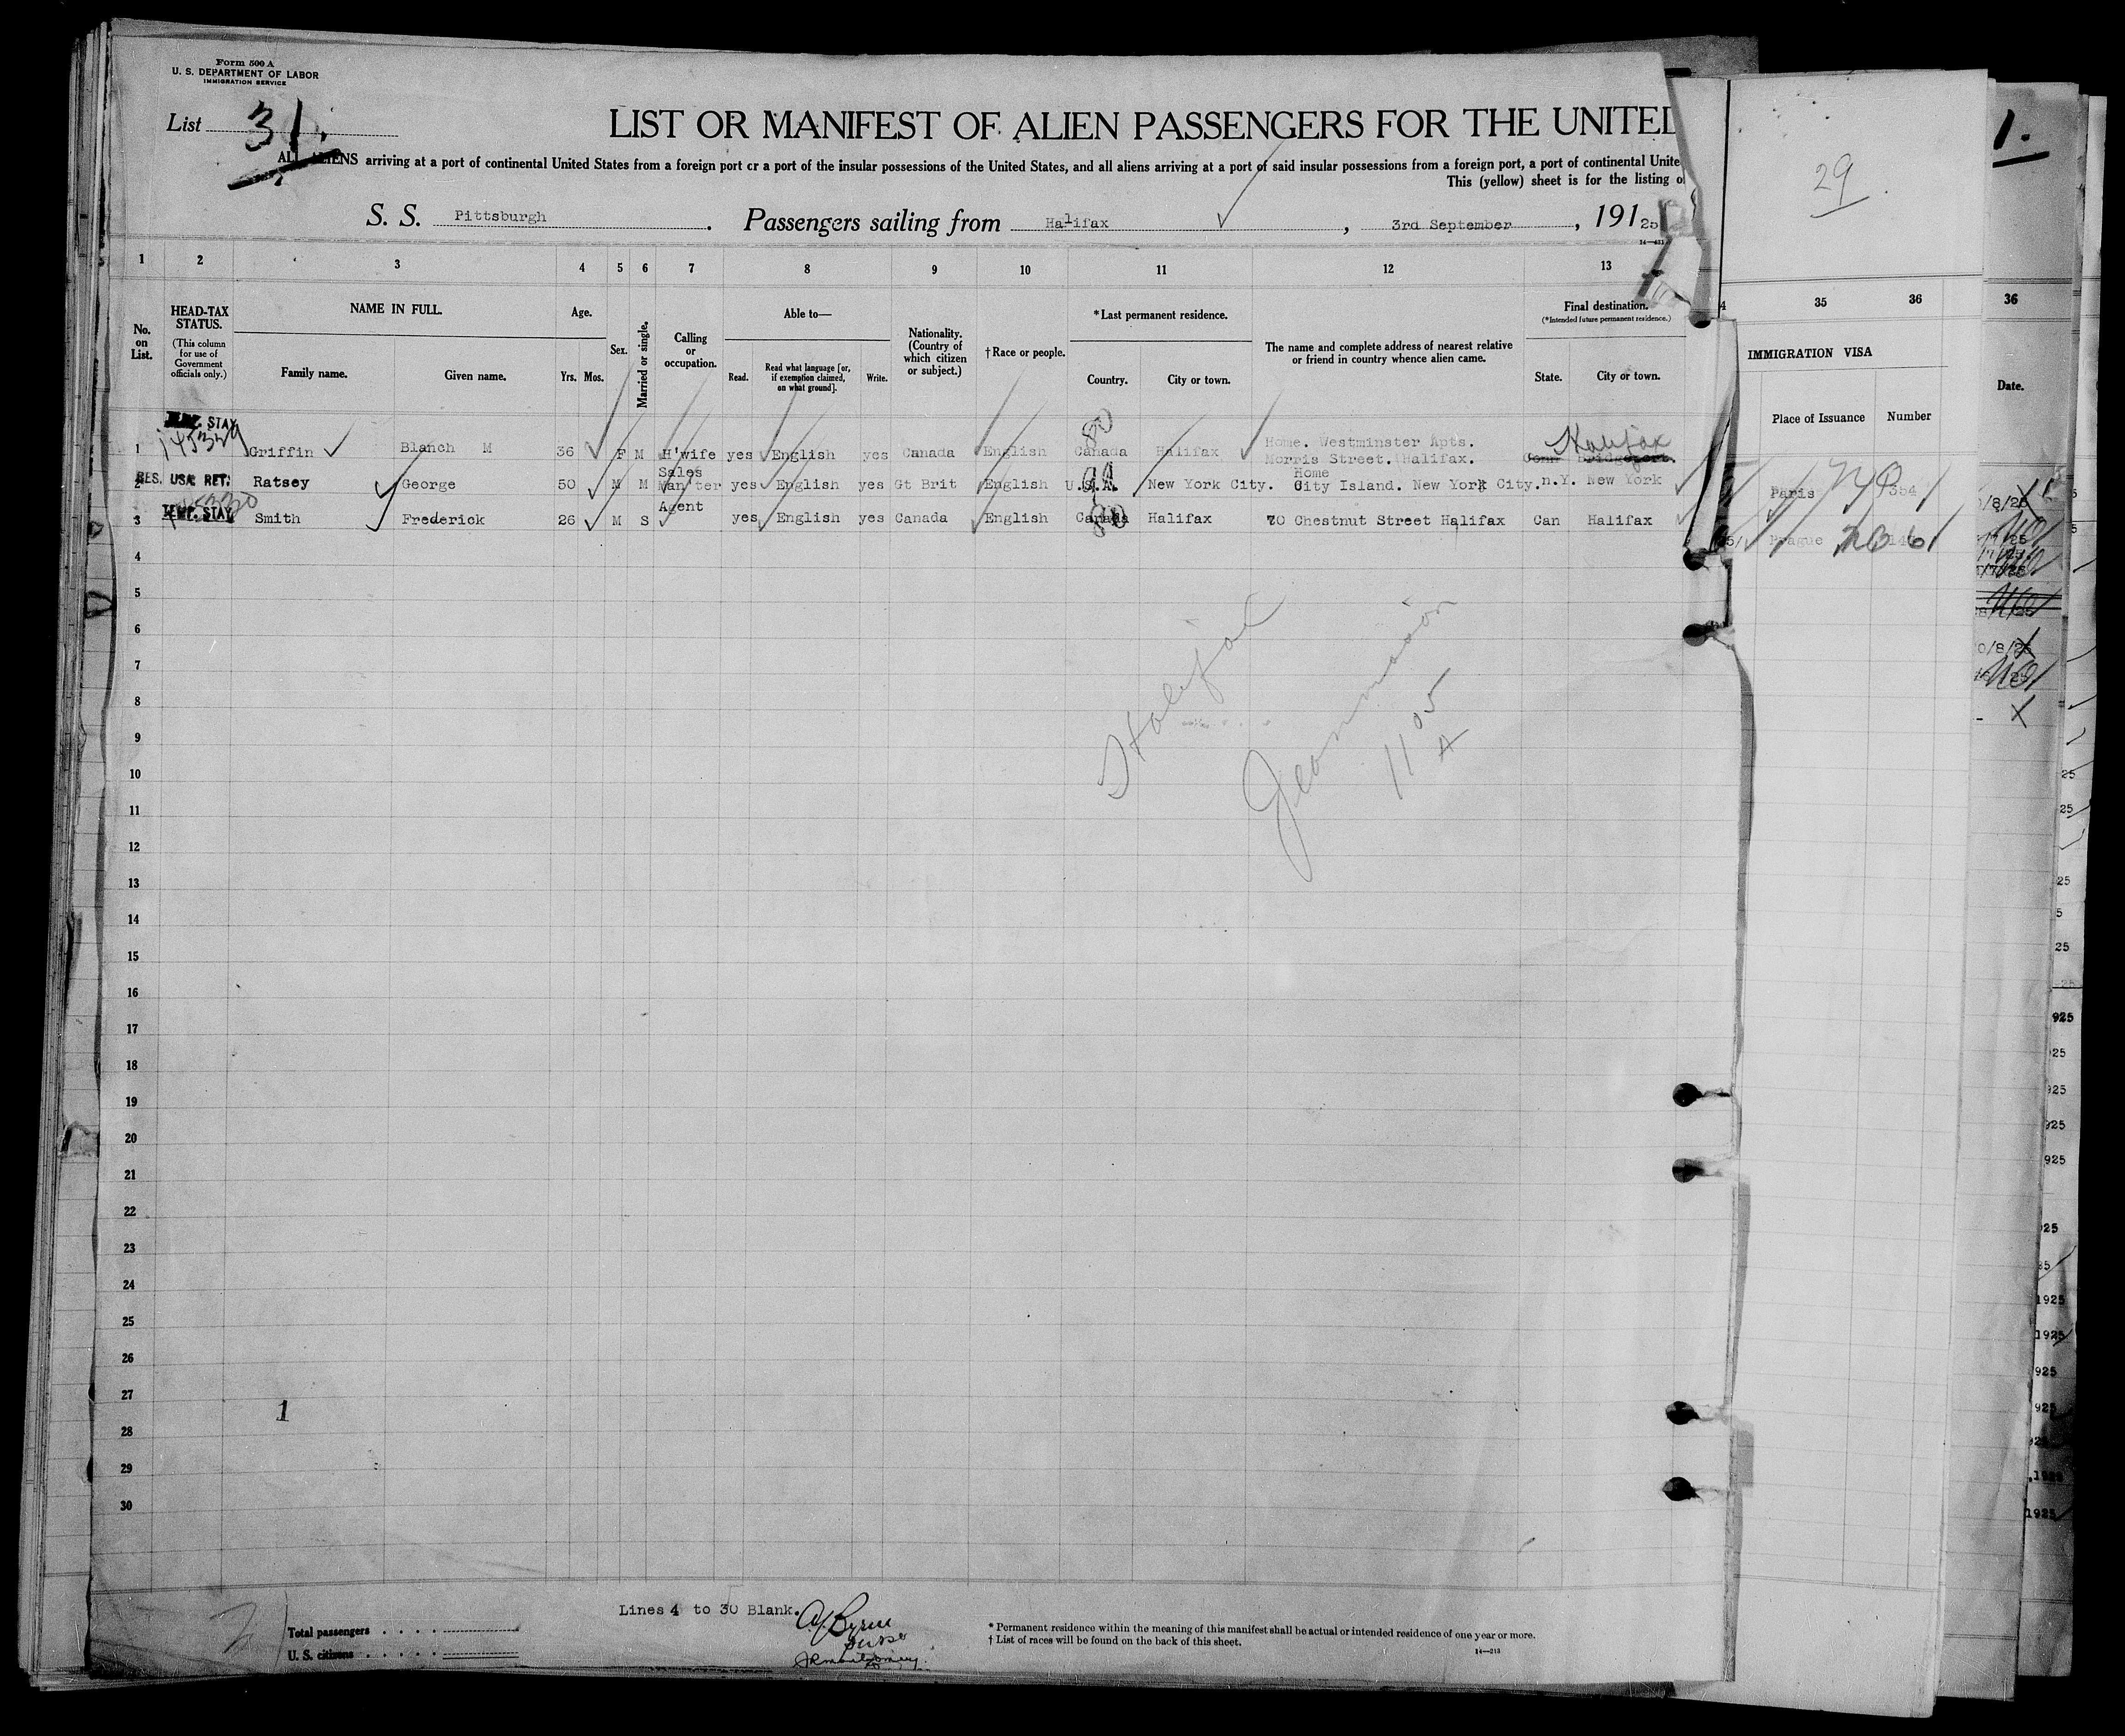 Form 500 A
U. S. DEPARTMENT OF LABOR
IMMIGRATION SERVICE
List 31.
LIST OR MANIFEST OF ALIEN PASSENGERS FOR THE UNITED
ALL ALIENS arriving at a port of continental United States from a foreign port or a port of the insular possessions of the United States, and all aliens arriving at a port of said insular possessions from a foreign port, a port of continental Unite
This (yellow) sheet is for the listing o
S. S. Pittsburgh. Passengers sailing from Halifax, 3rd September, 191 25
1 2 3 4 5 6 7 8 9 10 11 12 13
No. on List.
HEAD-TAX STATUS.
(This column for use of Government officials only.)
NAME IN FULL.
Family name. Given name.
Age.
Yrs. Mos.
Sex.
Married or single.
Calling or occupation.
Able to—
Read. Read what language [or, if exemption claimed, on what ground]. Write.
Nationality. (Country of which citizen or subject.)
†Race or people.
*Last permanent residence.
Country. City or town.
The name and complete address of nearest relative or friend in country whence alien came.
Final destination.
(*Intended future permanent residence.)
State. City or town.
TEMP. STAY
145329
80
Halifax
Home. Westminster Apts.
1 Griffin Blanch M 36 F M H'wife yes English yes Canada English Canada Halifax Morris Street. Halifax. Conn Bridgeport.
RES. USA. RET.
Sales
Home
2 Ratsey George 50 M M Man'ter yes English yes Gt Brit English U.S.A. New York City. City Island. New York City. n.Y. New York
145330
TEMP. STAY
Agent
80
3 Smith Frederick 26 M S yes English yes Canada English Canada Halifax 70 Chestnut Street Halifax Can Halifax
4
5
6
7
8
9
10
11
12
13
14
15
16
17
18
19
20
21
22
23
24
25
26
27
28
29
30
Halifax
1105
A
1
2
Lines 4 to 30 Blank.
Total passengers
U. S. citizens
A Byrne
* Permanent residence within the meaning of this manifest shall be actual or intended residence of one year or more.
† List of races will be found on the back of this sheet.
14—213
29
35 36
IMMIGRATION VISA
Place of Issuance Number
Paris 354
Prague
1.
36
Date.